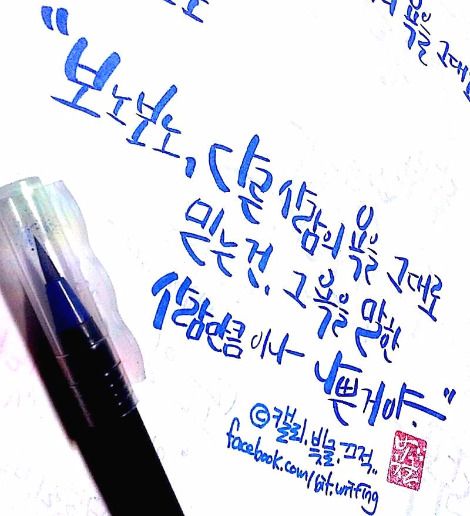 욕을 그대
"보노보노, 다른 사람의 욕을 그대로
믿는것, 그 욕을 말한
사람만큼이나 나쁜거야."
© 캘리.빗글.끄적..
facebook.com/bit.writing